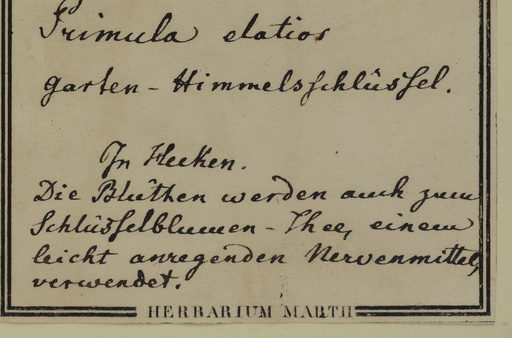 Primula elatior
garten - Himmelsschlüssel.
In Hecken.
Die Blüthen werden auch zum
Schlüsselblumen - Thee, einem
leicht anregenden Nervenmittel,
verwendet.
HERBARIUM MARTH